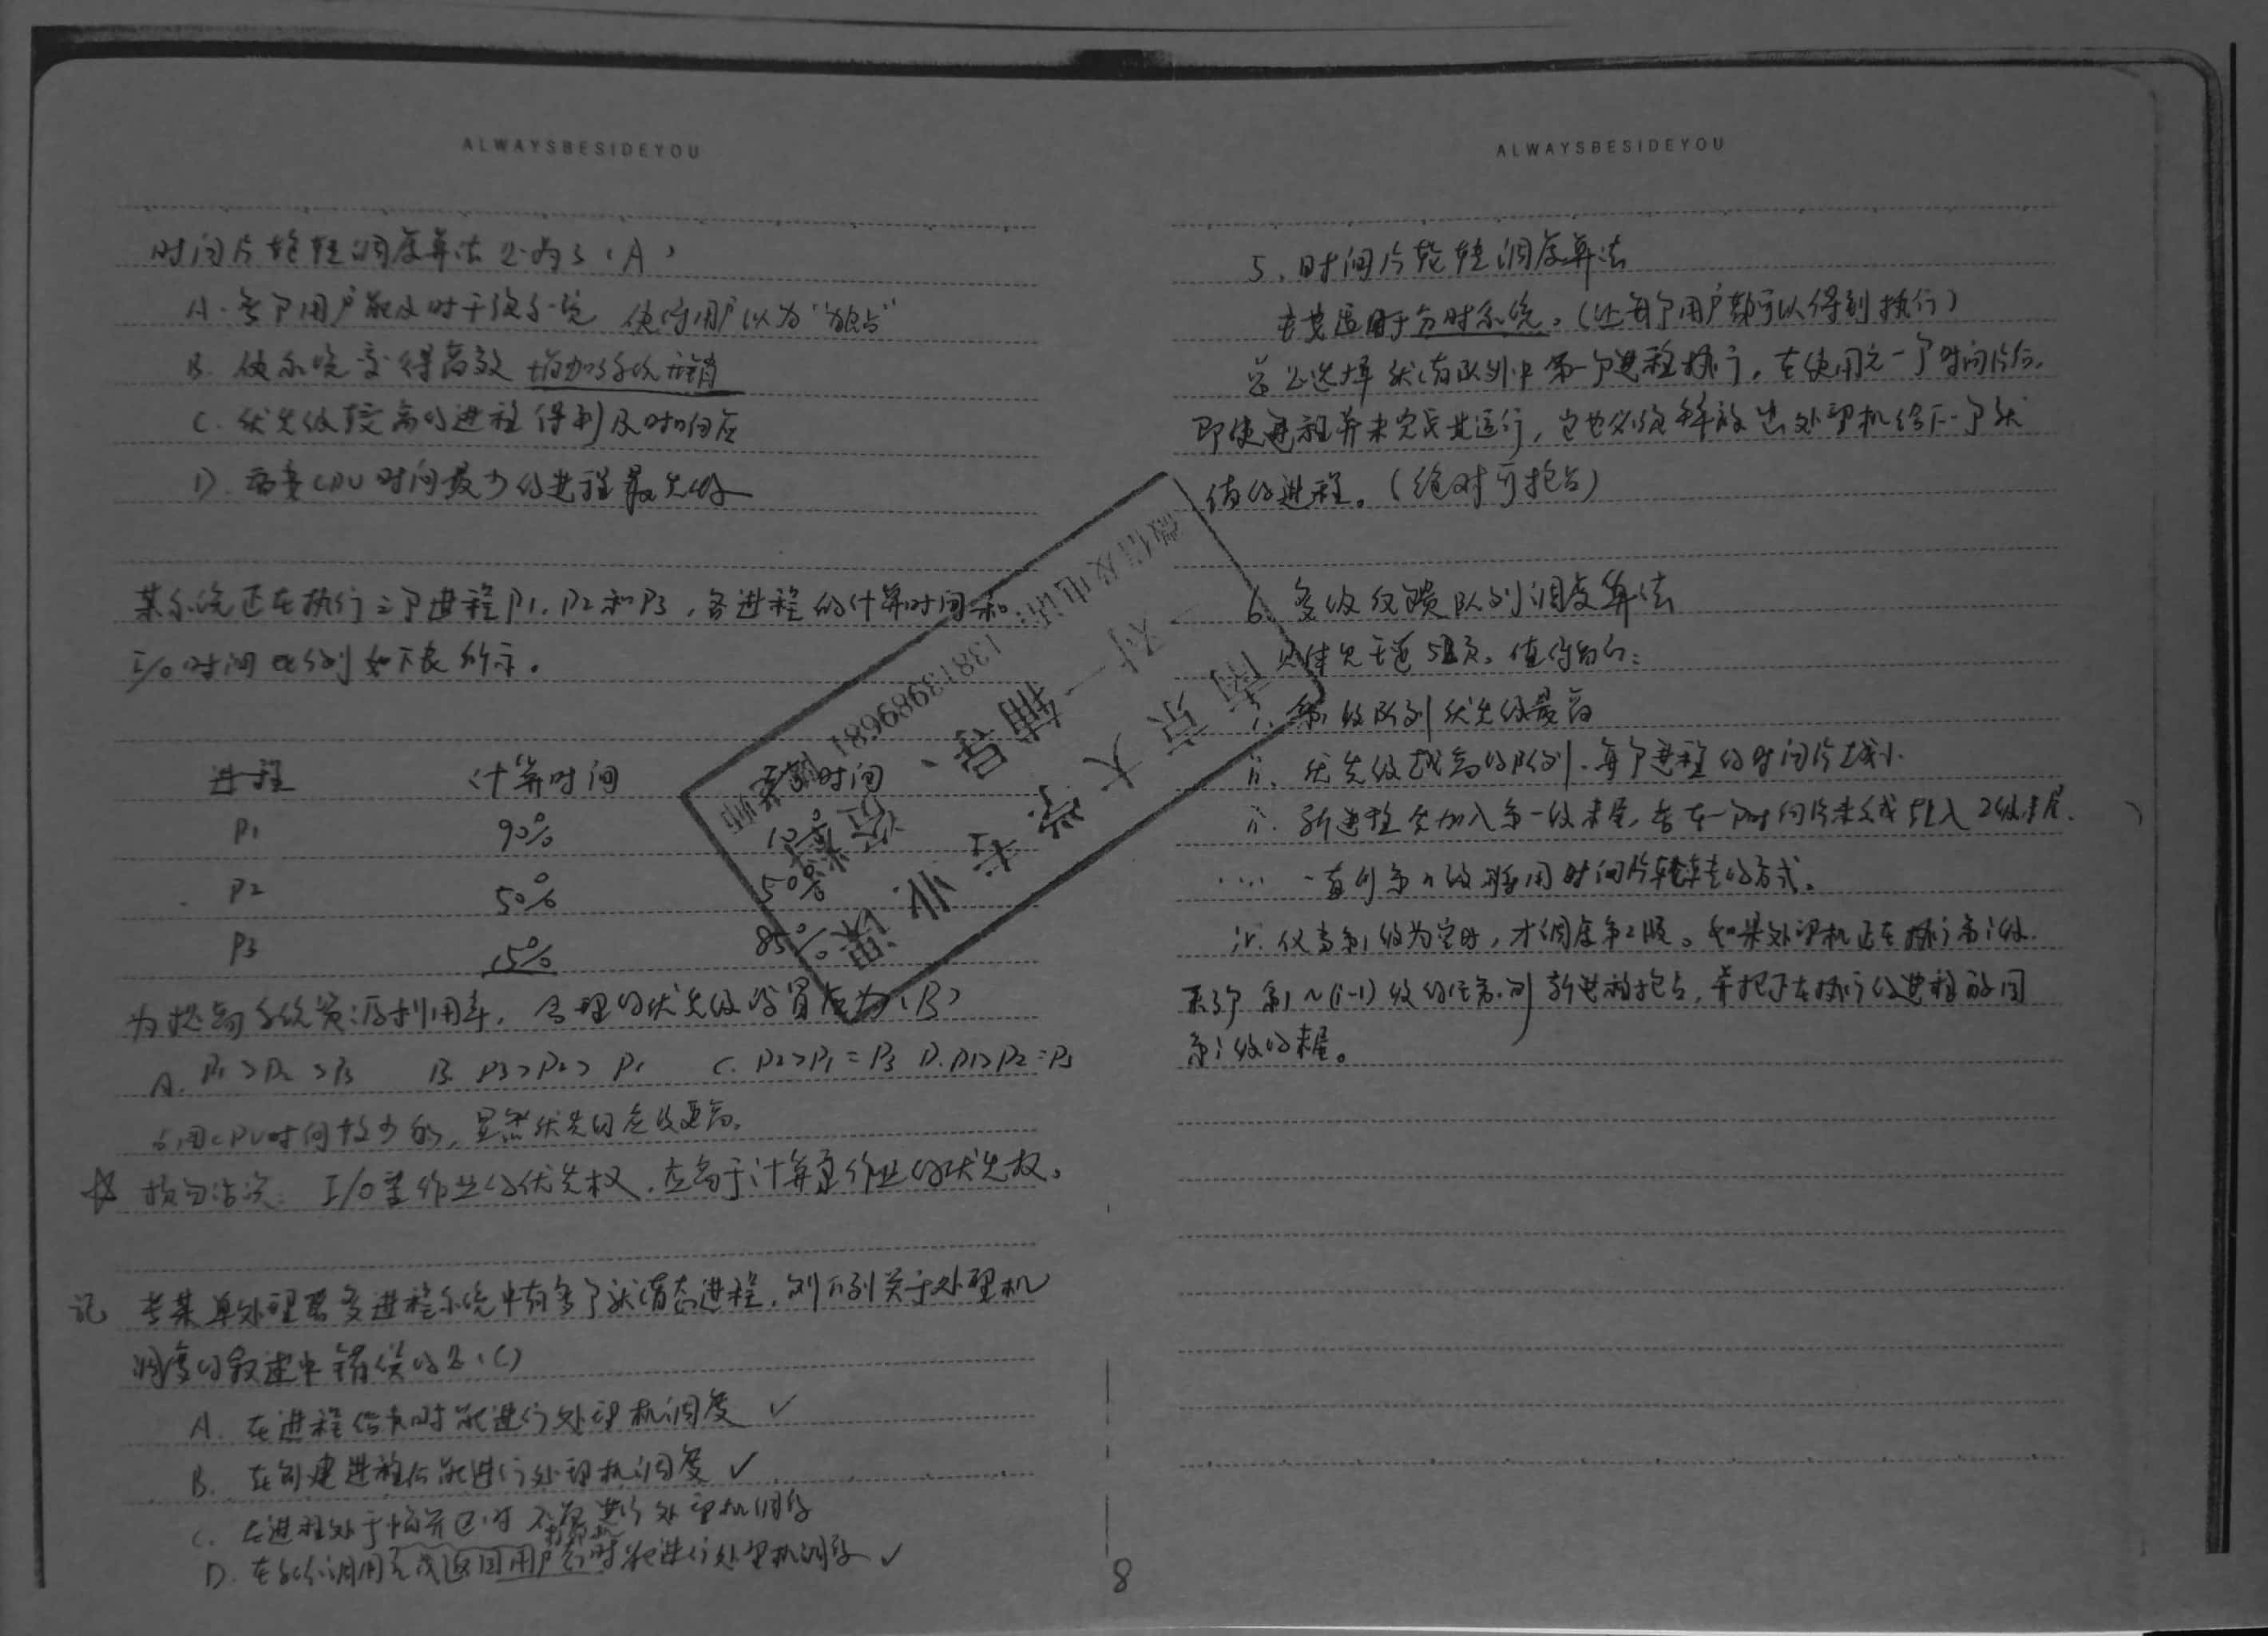 ALWAYSBESIDEYOU
时间片轮转调度算法是为了(A)
A. 多个用户能及时干预系统 使得用户以为"独占"
B. 使系统变得高效 增加系统开销
C. 优先级较高的进程得到及时响应
D. 需要CPU时间最少的进程最先做
某系统正在执行三个进程P1、P2和P3,各进程的计算时间和
I/O时间比例如下表所示。
进程 计算时间 I/O时间
P1 90% 10%
P2 50% 50%
P3 15% 85%
为提高系统资源利用率,合理的优先级设置应为(B)
A. P1>P2>P3 B. P3>P2>P1 C. P2>P1=P3 D. P1>P2=P3
占用CPU时间较少的,显然优先级应该更高。
☆ 换句话说: I/O型作业的优先权,应高于计算型作业的优先权。
记 若某单处理器多进程系统中有多个就绪态进程,则下列关于处理机
调度的叙述中错误的是(C)
A. 在进程结束时能进行处理机调度 ✓
B. 在创建进程后能进行处理机调度 ✓
C. 在进程处于临界区时不能进行处理机调度
D. 在系统调用完成返回用户态时能进行处理机调度 ✓
ALWAYSBESIDEYOU
5. 时间片轮转调度算法
主要适用于分时系统。(让每个用户都可以得到执行)
总是选择就绪队列中第一个进程执行,在使用完一个时间片后,
即使进程并未完成其运行,它也必须释放出处理机给下一个就
绪的进程。(绝对可抢占)
6. 多级反馈队列调度算法
值得留心:
i. 第1级队列优先级最高
ii. 优先级越高的队列,每个进程的时间片越小.
新进程先加入第一级末尾,若在一个时间片未完成转入2级末尾.
.... 一直到第n级采用时间片轮转的方式。
iv. 仅当第1级为空时,才调度第2级。如果处理机正在执行第i级.
来了 第1~(i-1)级的任务,则新进程抢占,并把正在执行的进程放回
第i级的末尾。
南京大学考业课
一对一辅导、答案
微信及电话:13813989681
8